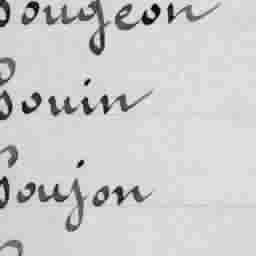 Gougeon
Gouin
Goujon